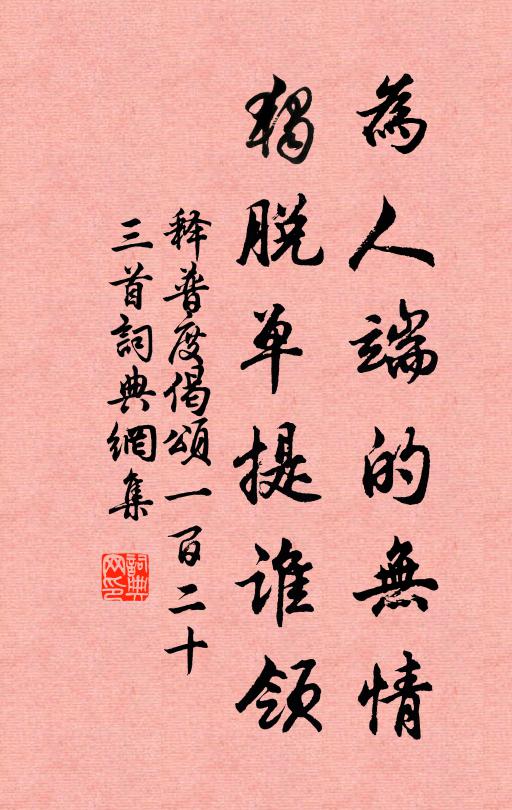 為人端的無情
獨脫单提谁領
释普度偈頌一百二十
三首詞典網集
詞典网印